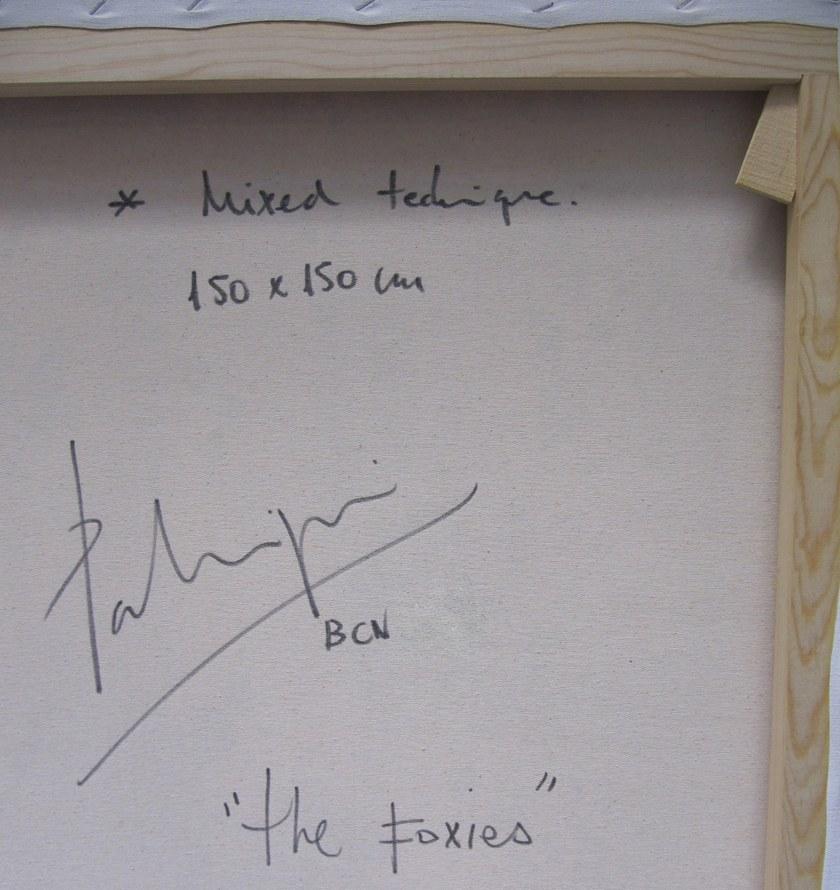 * Mixed technique.
150 x 150 cm
BCN
"the Foxies"